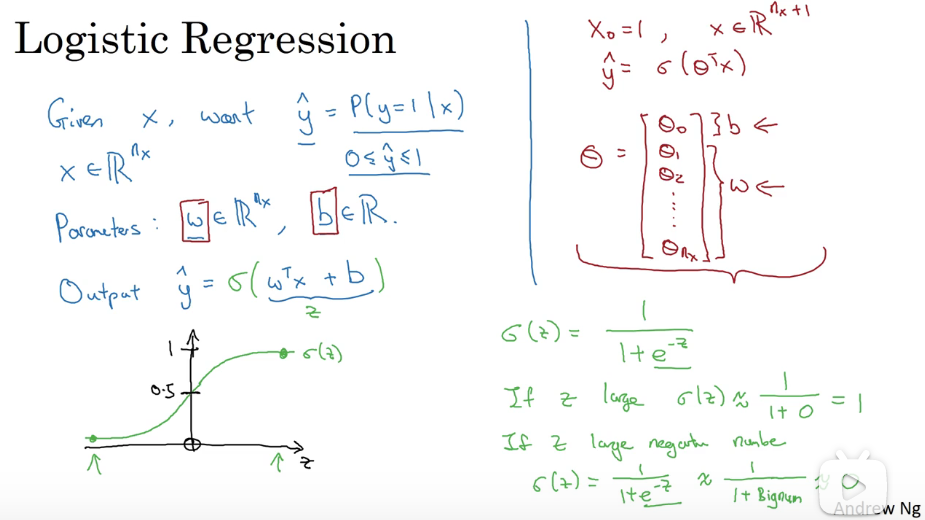 Logistic Regression
Given x, want ŷ = P(y=1|x)
x ∈ ℝ^{n_x}
0 ≤ ŷ ≤ 1
Parameters: w ∈ ℝ^{n_x}, b ∈ ℝ.
Output ŷ = σ(w^T x + b)
z
1
σ(z)
0.5
0
z
X_0 = 1, x ∈ ℝ^{n_x+1}
ŷ = σ(θ^T x)
θ = [θ_0 θ_1 θ_2 ⋮ θ_{n_x}]
} b ←
} w ←
σ(z) = 1 / (1 + e^{-z})
If z large σ(z) ≈ 1 / (1 + 0) = 1
If z large negative number
σ(z) = 1 / (1 + e^{-z}) ≈ 1 / (1 + Bignum) ≈ 0
Andrew Ng